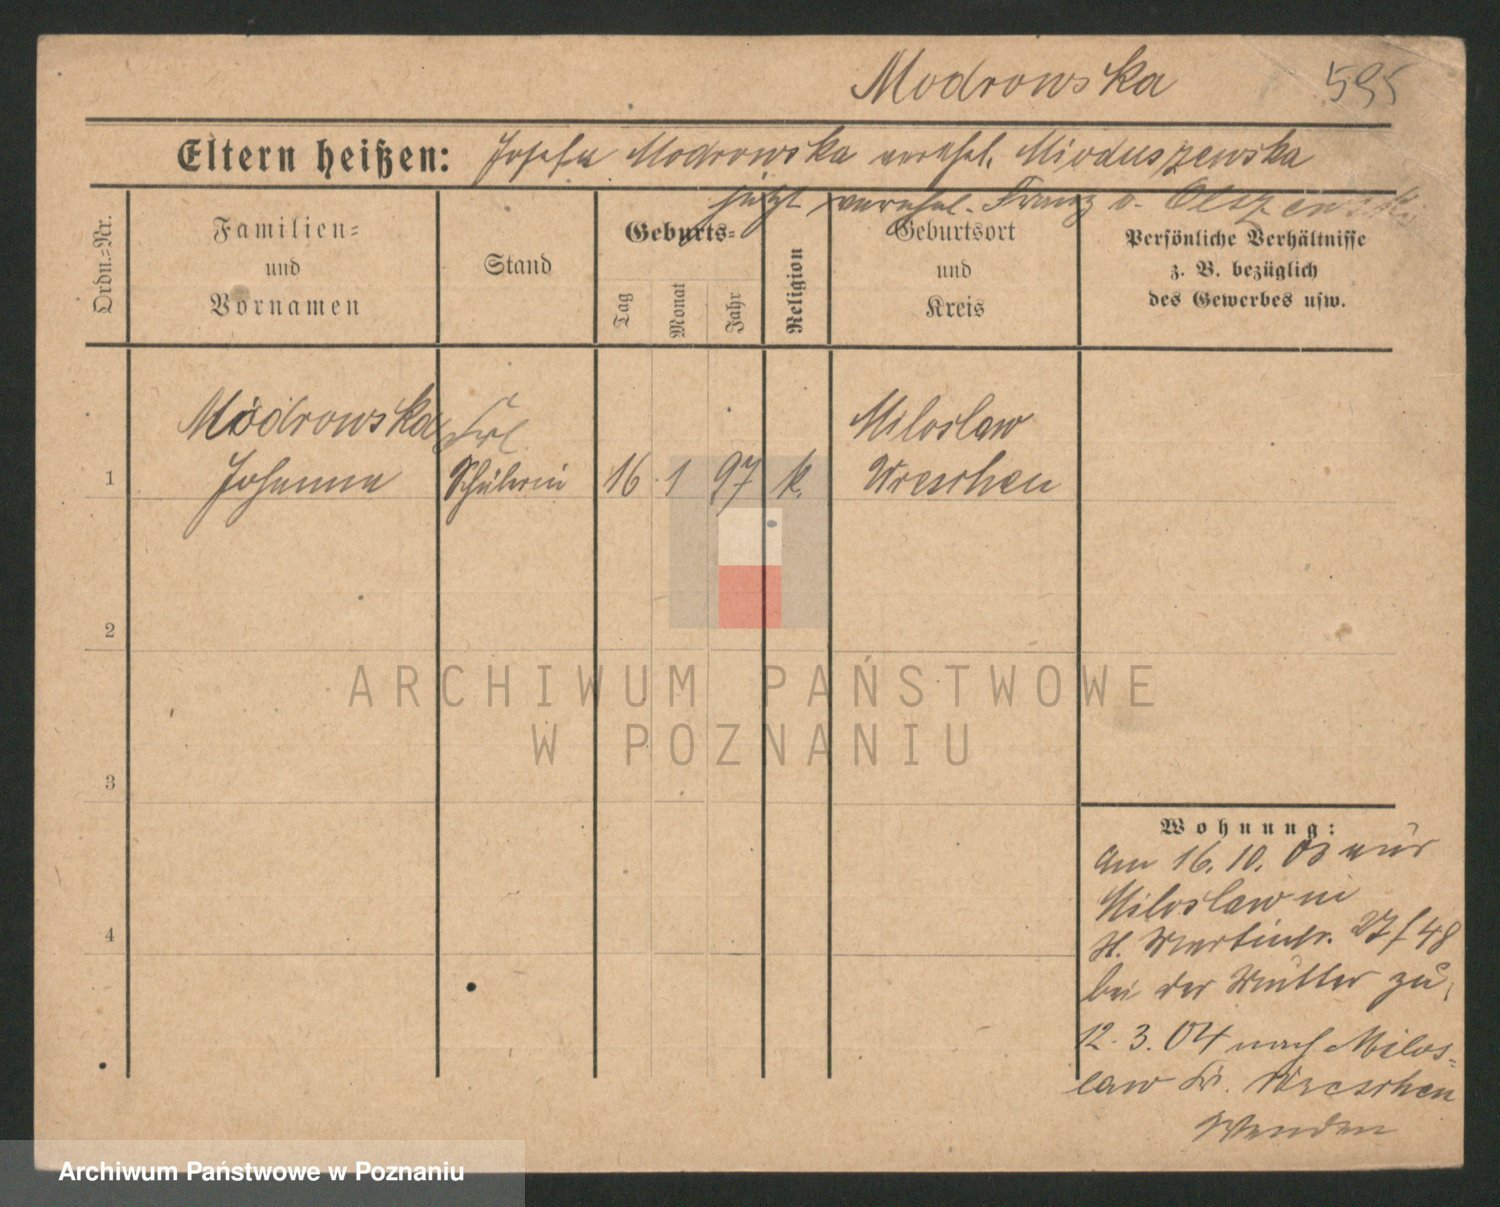 Modrowska 595
Eltern heißen: Josefa Modrowska verehel. Mioduszewska
jetzt verehel. Franz v. Olszewski
Ordn.-Nr.
Familien-
und
Vornamen
Stand
Geburts-
Tag
Monat
Jahr
Religion
Geburtsort
und
Kreis
Persönliche Verhältnisse
z. B. bezüglich
des Gewerbes usw.
Modrowska Frl Miloslaw
1 Johanna Schülerin 16 1 97 k. Wreschen
2
3
4
Wohnung:
Am 16. 10. 03 aus
Miloslaw in
St. Martinstr. 27/48
bei der Mutter zu,
12. 3. 04 nach Milos-
law Kr. Wreschen
ARCHIWUM PAŃSTWOWE
W POZNANIU
Archiwum Państwowe w Poznaniu